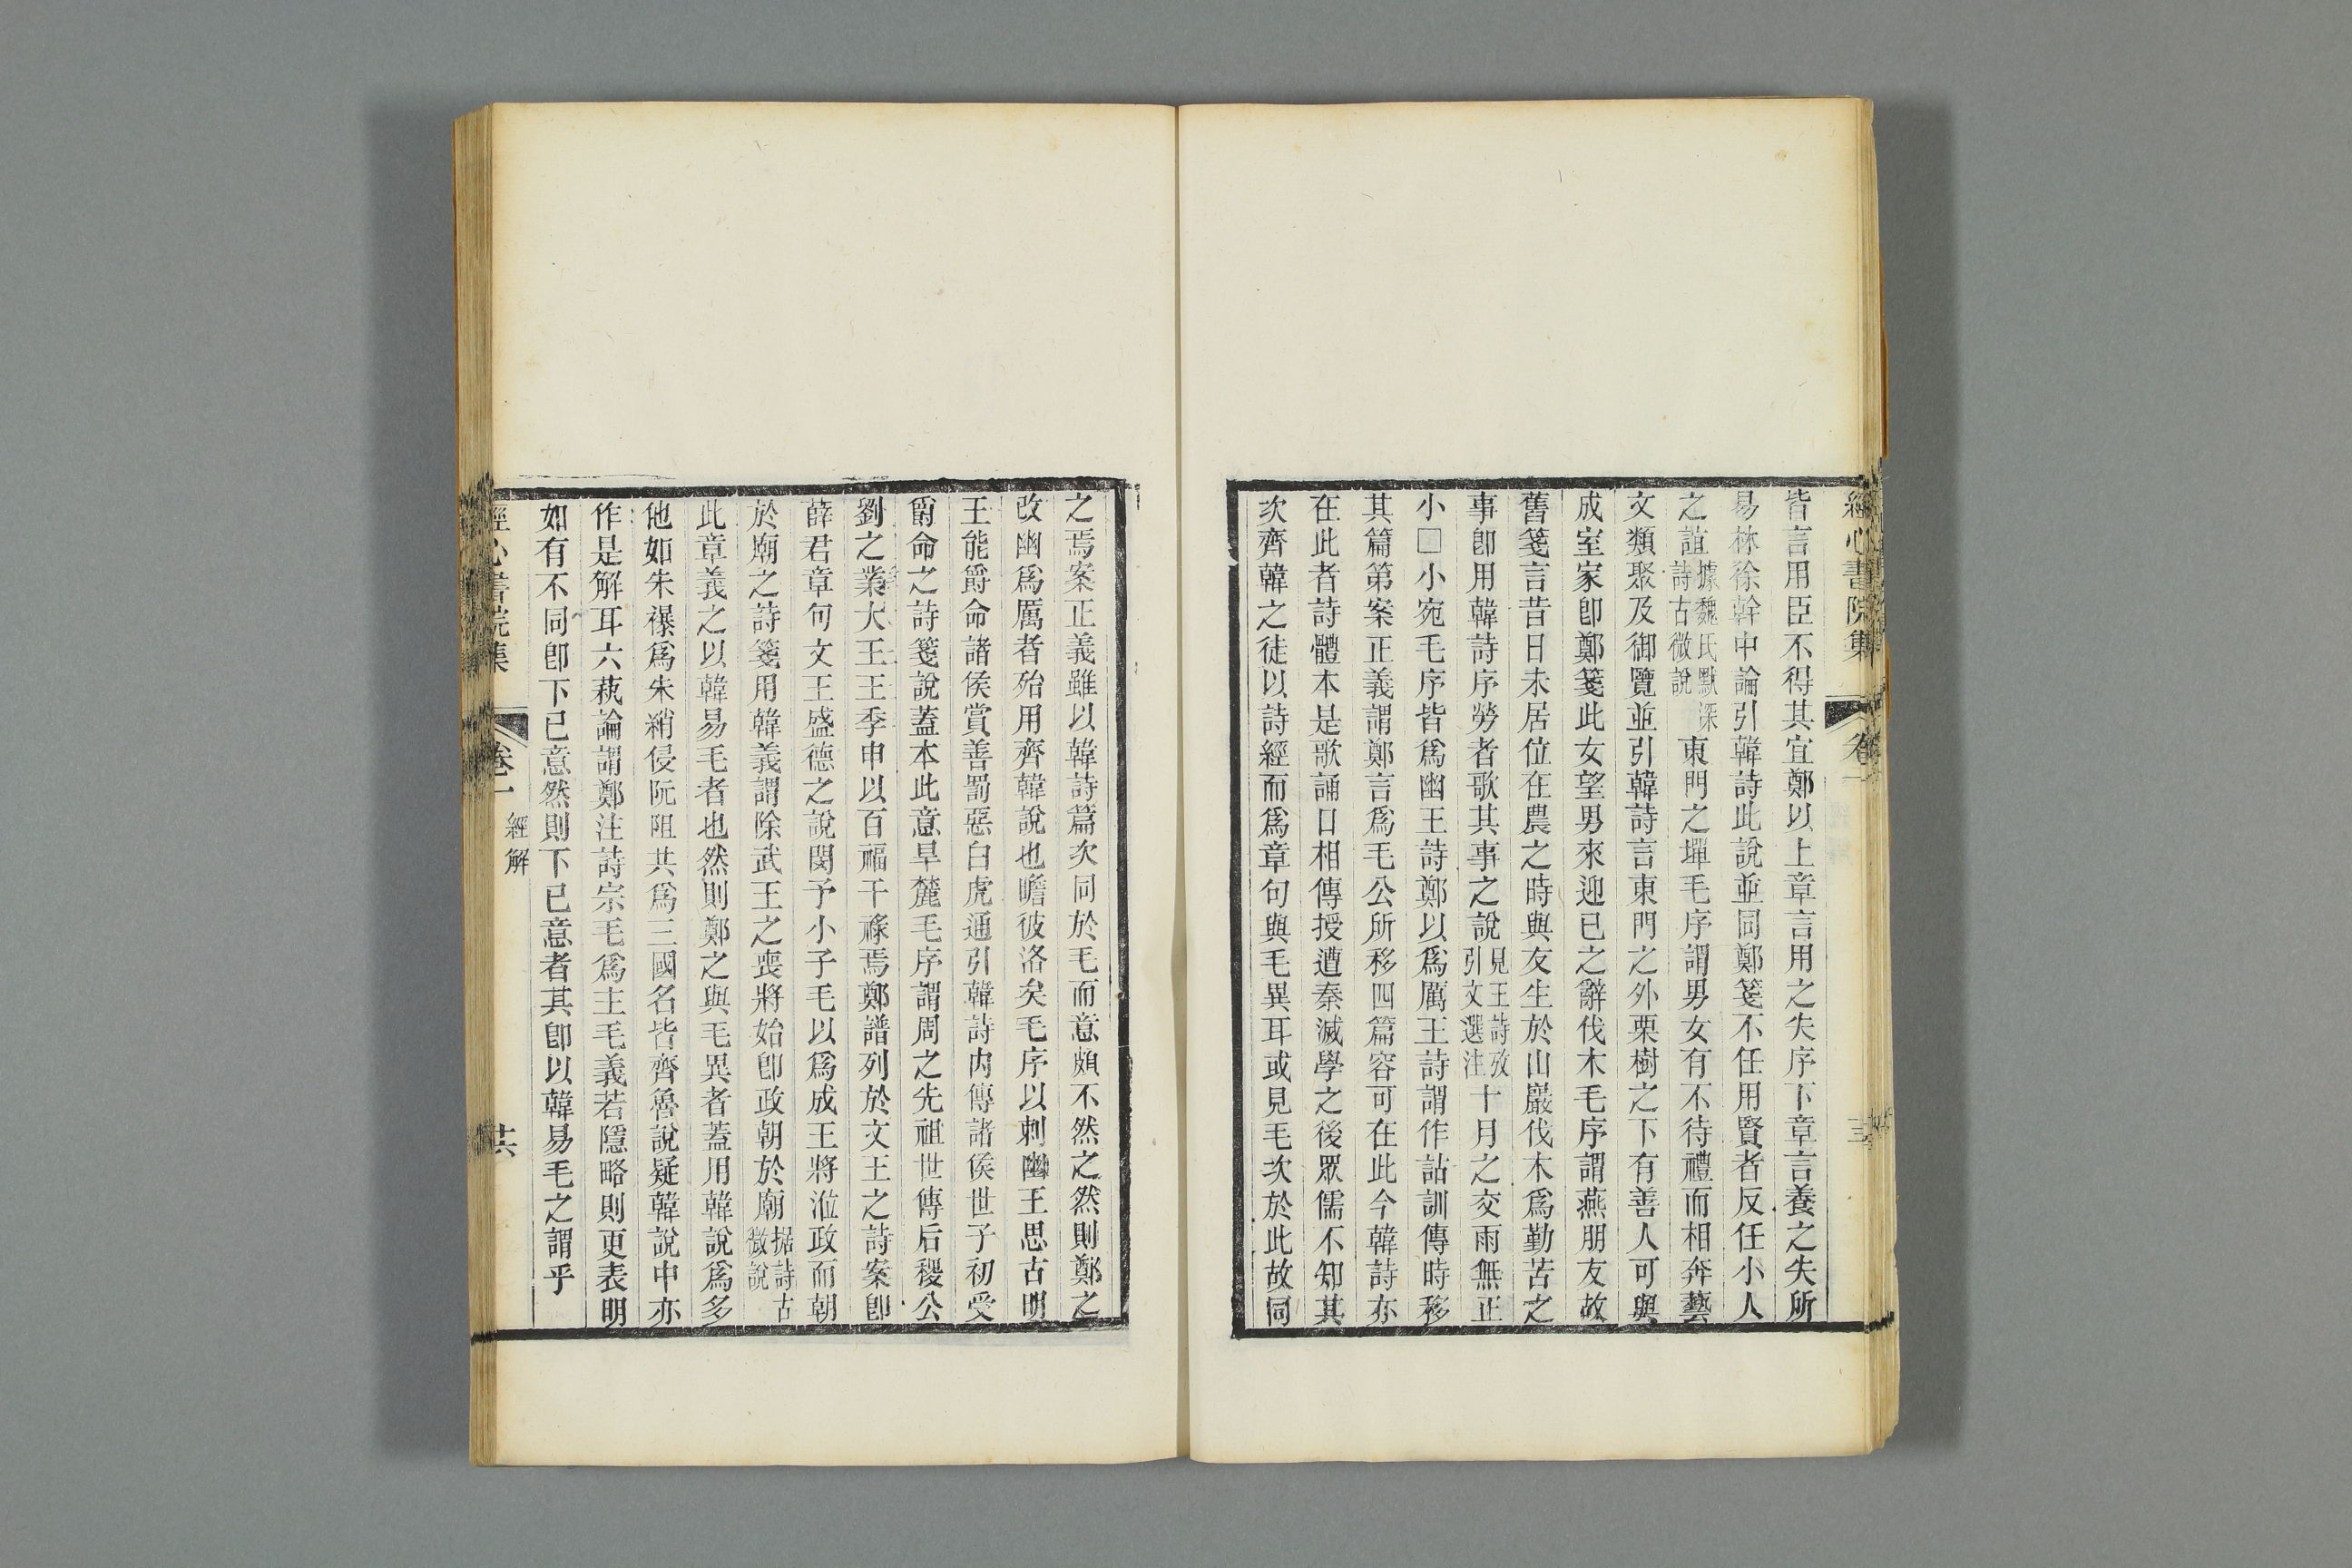 皆言用臣不得其宜鄭以上章言用之失序下章言養之失所
易林徐幹中論引韓詩此說並同鄭箋不任用賢者反任小人
之誼據魏氏默深詩古微說東門之墠毛序謂男女有不待禮而相奔藝
文類聚及御覽並引韓詩言東門之外栗樹之下有善人可與
成室家卽鄭箋此女望男來迎已之辭伐木毛序謂燕朋友故
舊箋言昔日未居位在農之時與友生於山巖伐木爲勤苦之
事卽用韓詩序勞者歌其事之說見王詩攷引文選注十月之交雨無正
小□小宛毛序皆爲幽王詩鄭以爲厲王詩謂作詁訓傳時移
其篇第案正義謂鄭言爲毛公所移四篇容可在此今韓詩亦
在此者詩體本是歌誦口相傳授遭秦滅學之後眾儒不知其
次齊韓之徒以詩經而爲章句與毛異耳或見毛次於此故同
之焉案正義雖以韓詩篇次同於毛而意頗不然之然則鄭之
改幽爲厲者殆用齊韓說也瞻彼洛矣毛序以刺幽王思古明
王能爵命諸侯賞善罰惡白虎通引韓詩內傳諸侯世子初受
爵命之詩箋說蓋本此意旱麓毛序謂周之先祖世傳后稷公
劉之業大王王季申以百福干祿焉鄭譜列於文王之詩案卽
薛君章句文王盛德之說閔予小子毛以爲成王將涖政而朝
於廟之詩箋用韓義謂除武王之喪將始卽政朝於廟据詩古微說
此章義之以韓易毛者也然則鄭之與毛異者蓋用韓說爲多
他如朱襮爲朱綃侵阮阻共爲三國名皆齊魯說疑韓說中亦
作是解耳六蓺論謂鄭注詩宗毛爲主毛義若隱略則更表明
如有不同卽下已意然則下已意者其卽以韓易毛之謂乎
經心書院集 卷一 經解 共六